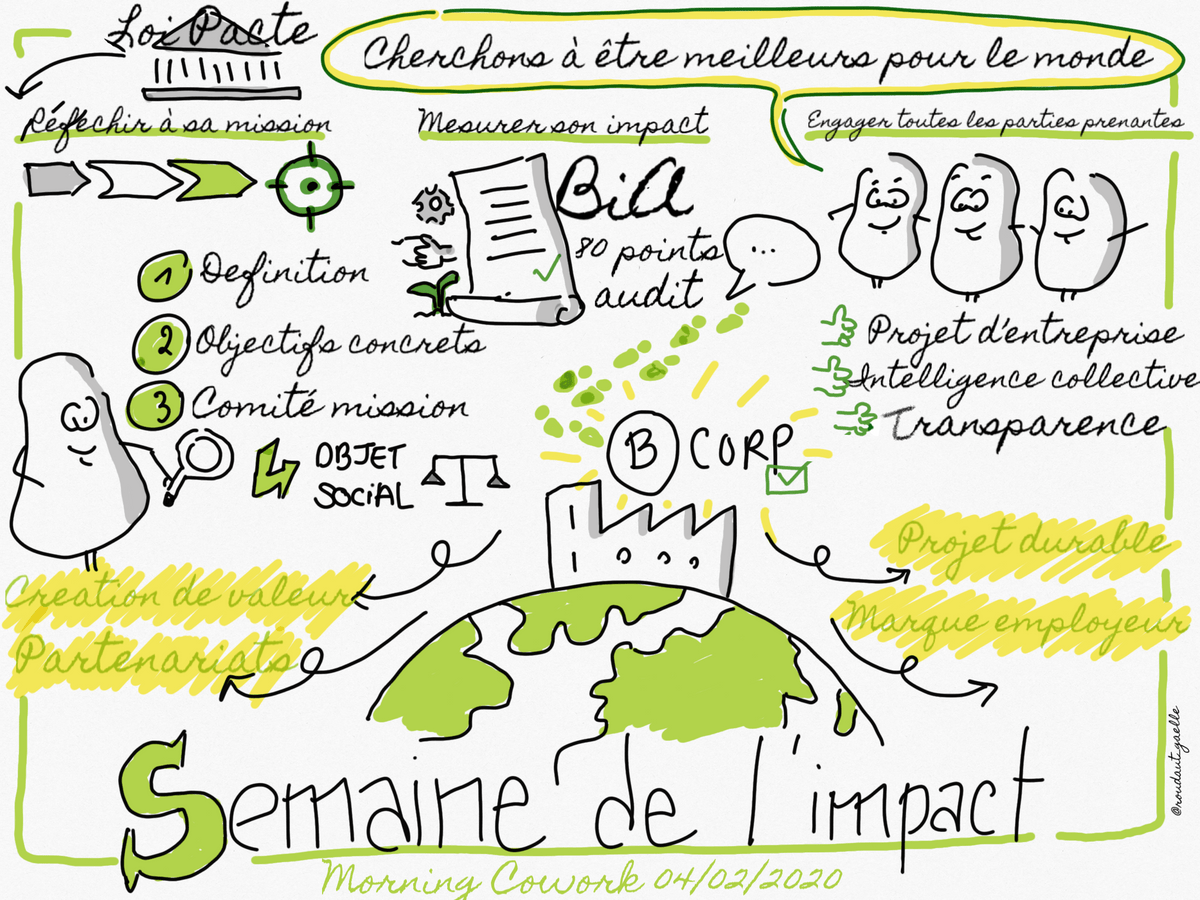 Loi Pacte
Cherchons à être meilleurs pour le monde
Réfléchir à sa mission
1 Definition
2 Objectifs concrets
3 Comité mission
OBJET
SOCIAL
Mesurer son impact
BiA
80 points
audit
...
Engager toutes les parties prenantes
Projet d'entreprise
Intelligence collective
Transparence
B CORP
Creation de valeur
Partenariats
Projet durable
Marque employeur
Semaine de l'impact
Morning Cowork 04/02/2020
@roudautgaelle